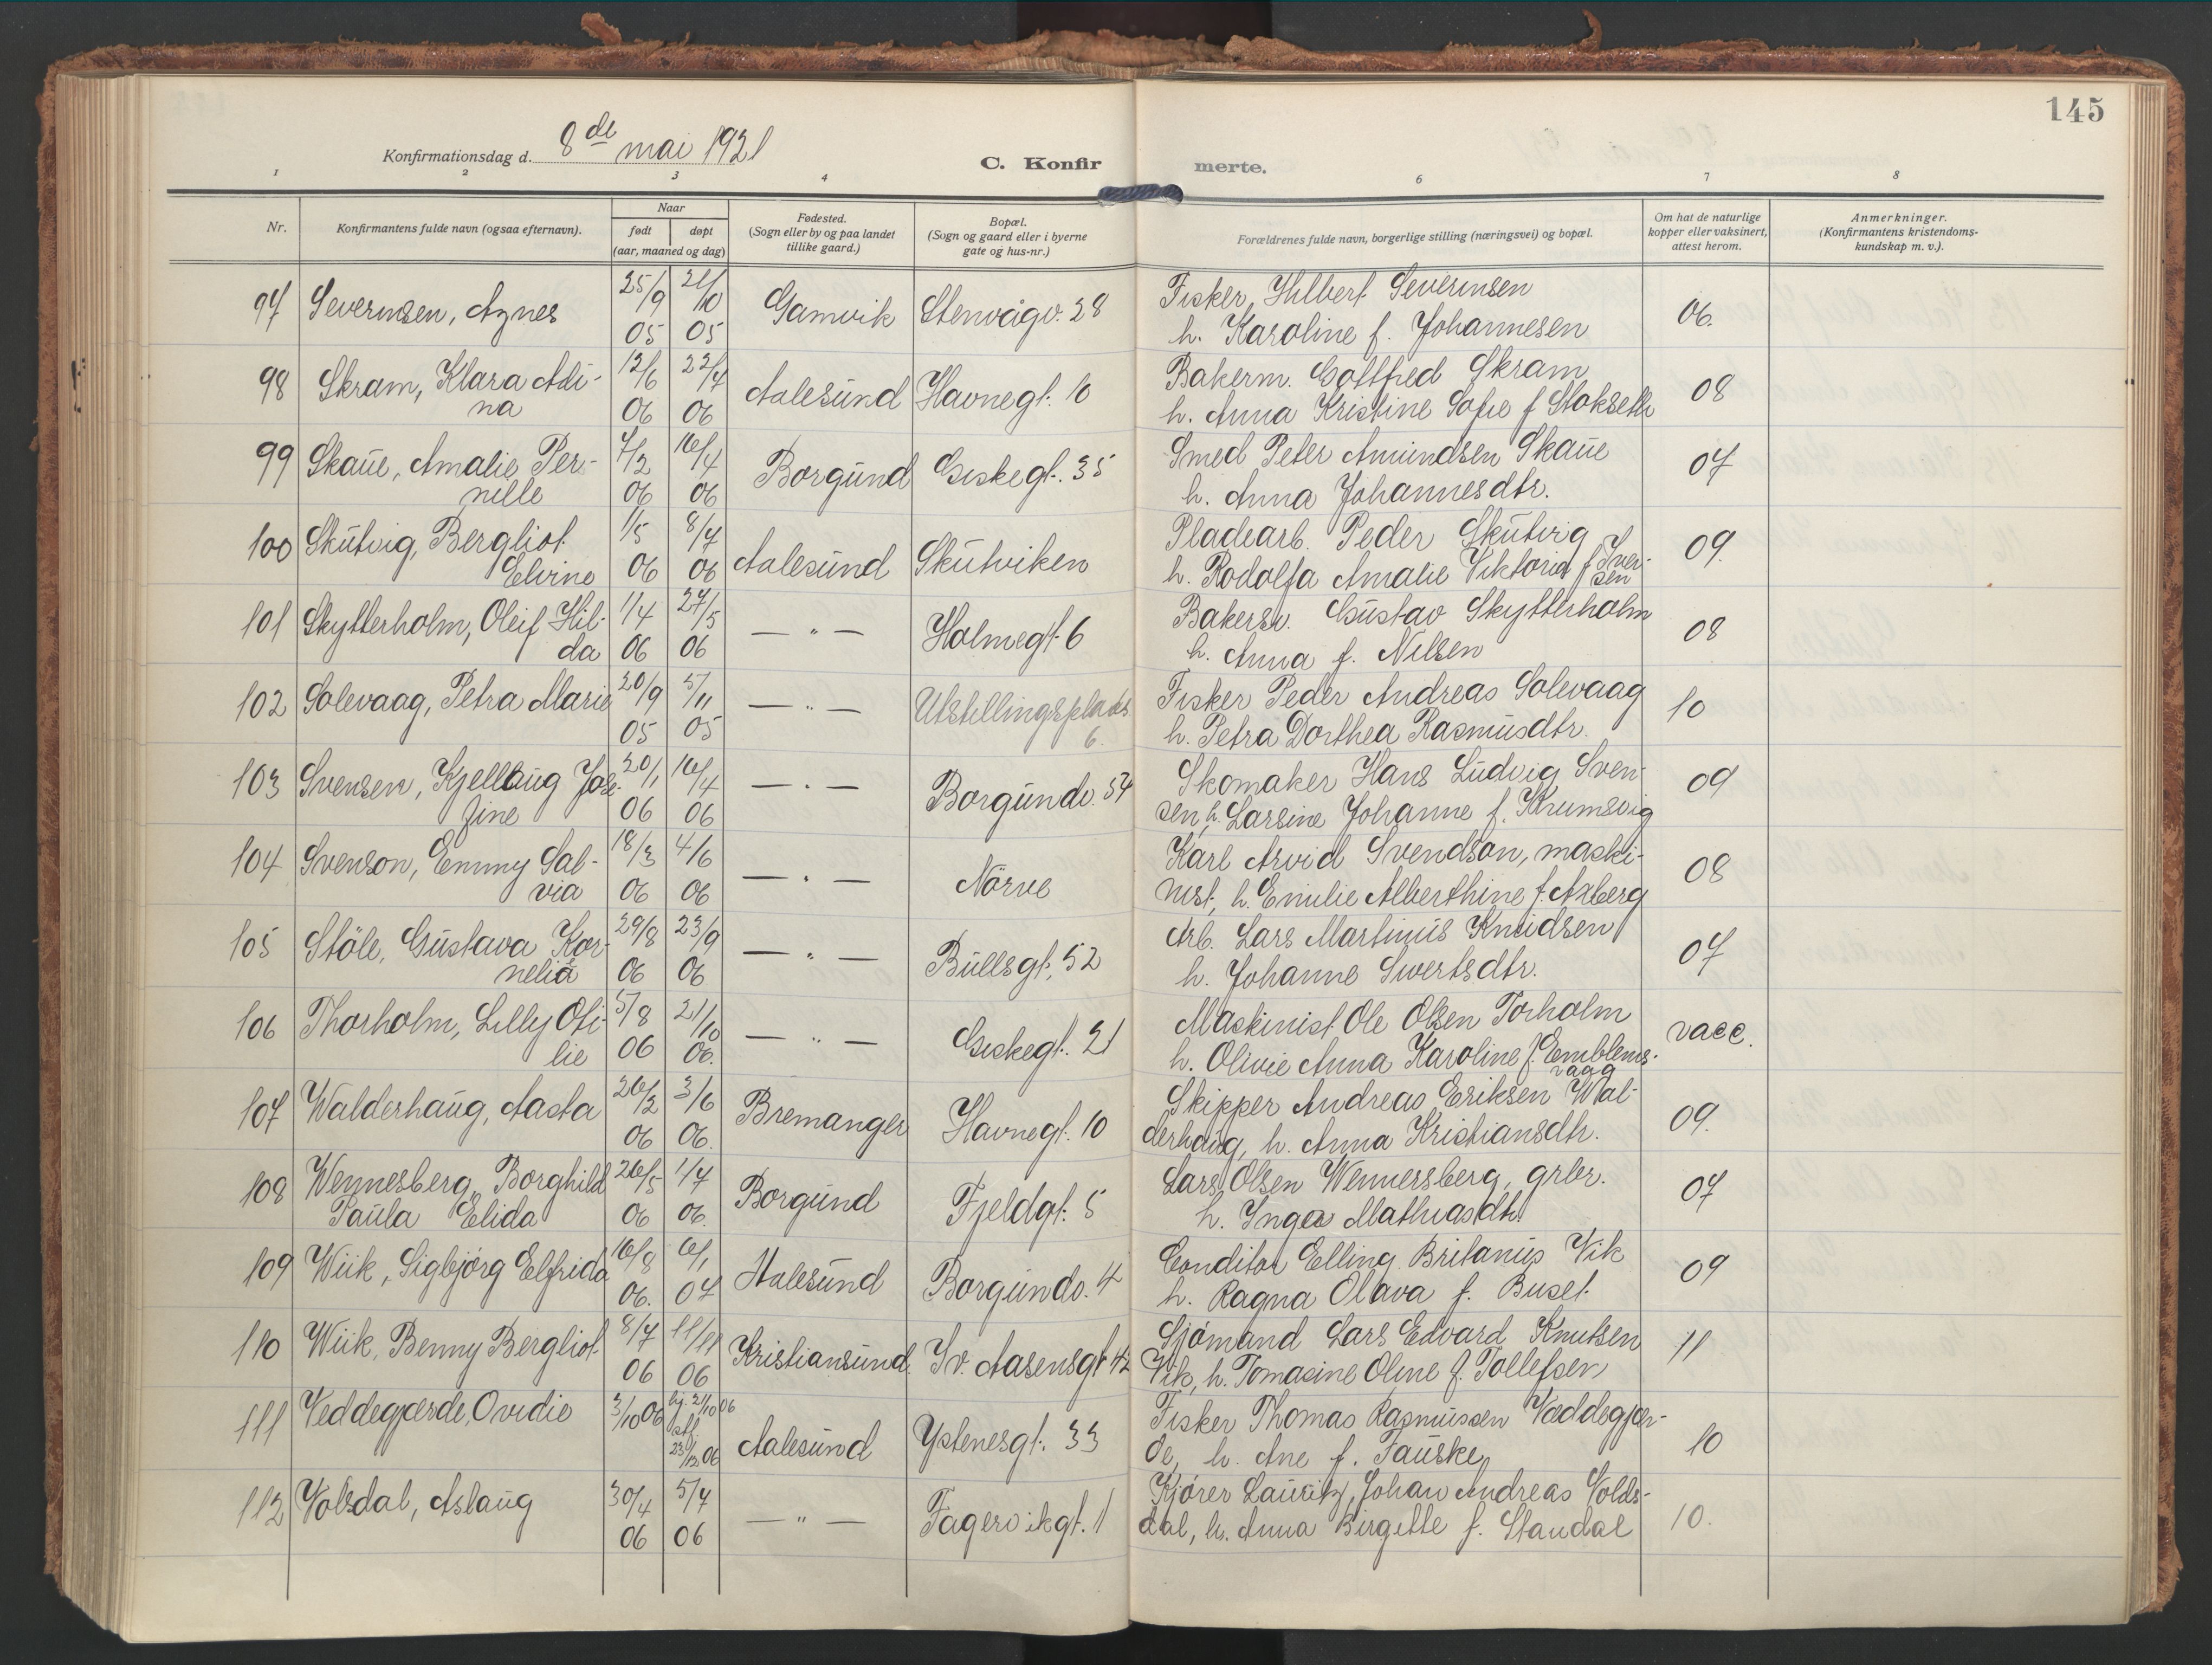 145
Konfirmationsdag d. 8de mai 1921
C. Konfirmerte.
1 2 3 4 6 7 8
Nr.
Konfirmantens fulde navn (ogsaa efternavn).
Naar
født døpt
(aar, maaned og dag)
Fødested.
(Sogn eller by og paa landet
tillike gaard.)
Bopæl.
(Sogn og gaard eller i byerne
gate og hus-nr.)
Forældrenes fulde navn, borgerlige stilling (næringsvei) og bopæl.
Om hat de naturlige
kopper eller vaksinert,
attest herom.
Anmerkninger.
(Konfirmantens kristendoms-
kundskap m. v.).
97 Severinsen, Agnes 25/9 05 21/10 05 Gamvik Stenvågv. 28
Fisker, Hilbert Severinsen
h. Karoline f. Johannesen
06.
98 Skram, Klara Adi-
na
12/6 06 22/7 06 Aalesund Havnegt. 10
Bakerm. Gottfred Skram
h. Anna Kristine Sofie f Stokseth
08
99 Skaue, Amalie Per-
nille
7/2 06 16/4 06 Borgund Giskegt. 35
Smed Peter Amundsen Skaue
h. Anna Johannesdtr.
07
100 Skutvig, Bergliot
Elvine
1/5 06 8/7 06 Aalesund Skutviken
Pladearb. Peder Skutvig
h. Rodolfa Amalie Viktoria f Iver-
sen
09.
101 Skytterholm, Oleif Hil-
da
1/4 06 27/5 06 — " — Holmegt 6
Bakersv. Gustav Skytterholm
h. Anna f. Nilsen
08
102 Solevaag, Petra Marie 20/9 05 5/11 05 — " — Utstillingsplads
6.
Fisker Peder Andreas Solevaag
h. Petra Dorthea Rasmusdtr.
10
103 Svensen, Kjellaug Jose-
fine
20/1 06 16/4 06 — " — Borgundv. 54
Skomaker Hans Ludvig Sven-
sen, h. Larsine Johanne f. Krumsvig
09
104 Svenson, Emmy Sal-
via
18/3 06 4/6 06 — " — Nörve
Karl Arvid Svendson, maski-
nist, h. Emilie Alberthine f. Axberg
08
105 Stöle, Gustava Kor-
nelia
29/8 06 23/9 06 — " — Bullsgt. 52
Arb. Lars Martinus Knudsen
h. Johanne Sivertsdtr.
07
106 Thorholm, Lilly Oti-
lie
5/8 06 21/10 06. — " — Giskegt. 21
Maskinist Ole Olsen Torholm
h. Olivie Anna Karoline f. Emblems-
vaag
vacc.
107 Walderhaug, Aasta 26/2 06 3/6 06. Bremanger Havnegt. 10
Skipper Andreas Eriksen Wal-
derhaug, h. Anna Kristiansdtr.
09.
108 Wennesberg, Borghild
Paula Elida
26/5 06 1/7 06. Borgund Fjeldgt. 5
Lars Olsen Wennersberg, grbr.
h. Inga Mathiasdtr.
07
109 Wiik, Sigbjörg Elfrida 16/8 06. 6/1 07 Aalesund Borgundv. 4
Conditor Elling Britanius Vik
h. Ragna Olava f. Buset
09
110 Wiik, Benny Bergliot 8/7 06 11/11 06 Kristiansund. Iv. Aasensgt 42
Sjömand Lars Edvard Knutsen
Vik, h. Tomasine Oline f. Tollefsen
11
111 Veddegjærde, Ovidie 3/10 06 hj. 2/10 06
stf.
23/12 06
Aalesund Ystenesgt. 33
Fisker Thomas Rasmussen Væddegjær-
de, h. Ane f. Fauske
10
112 Volsdal, Aslaug 30/4 06 5/7 06 — " — Fagervikgt. 1
Kjörer Lauritz, Johan Andreas Volds-
dal, h. Anna Birgitte f. Standal
10.